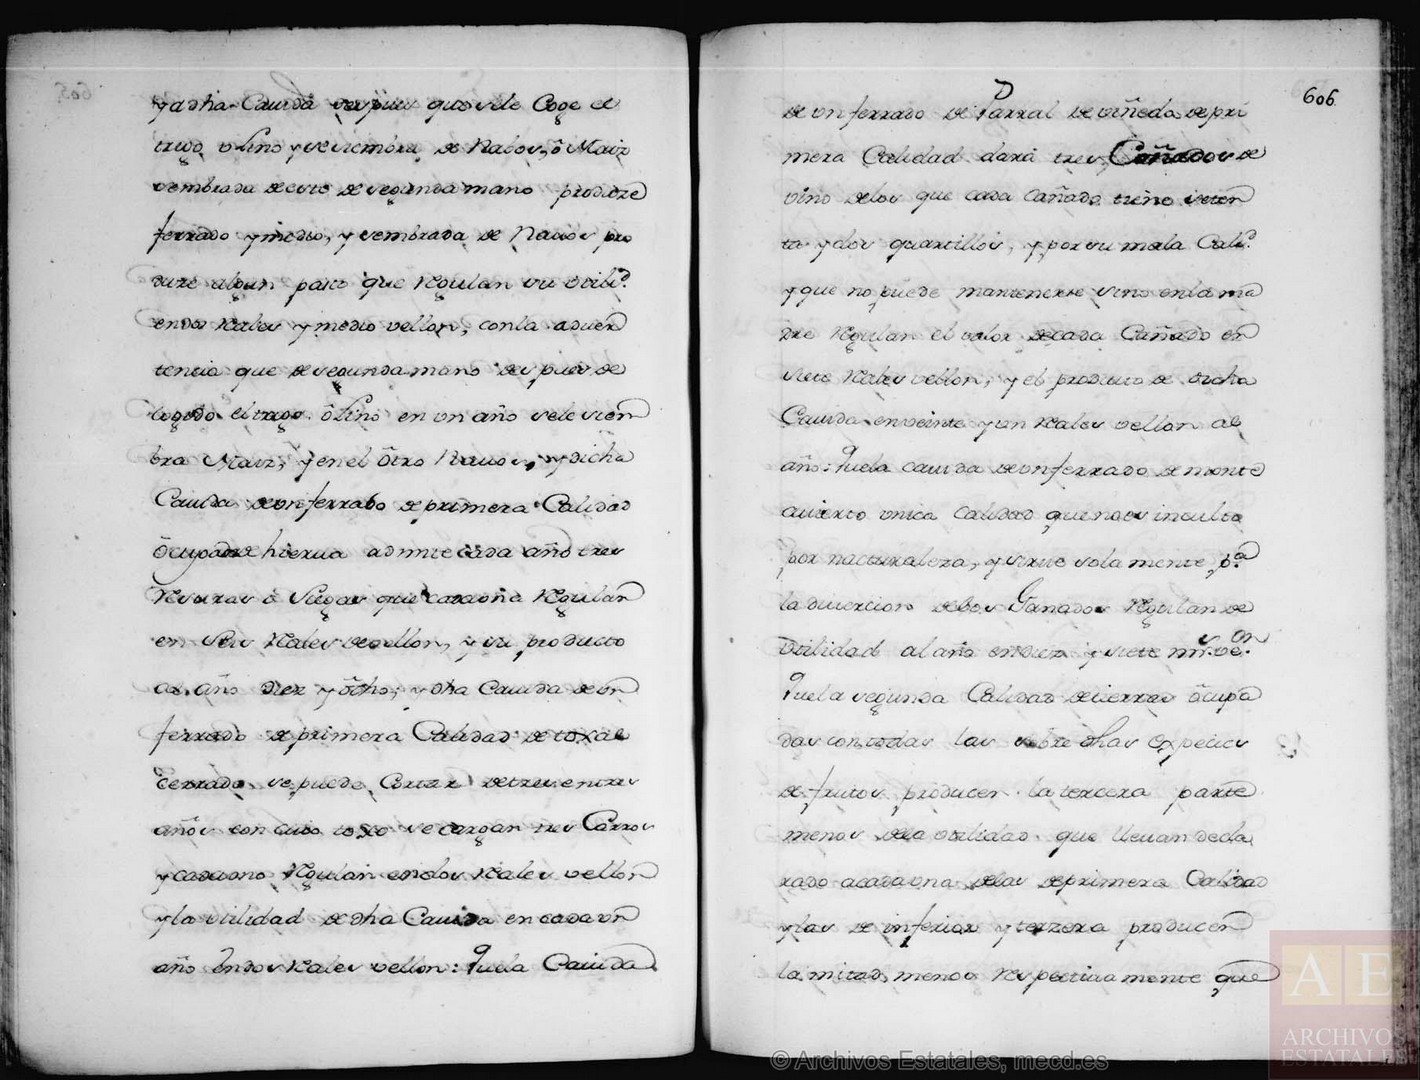 y a dha Cauida despues que se le Coge el
trigo o Lino y se siembra de Nabos, ô Maiz
sembrada de este de segunda mano produze
ferrado y medio, y sembrada de Nauos pro
duze algun pasto que Regulan su Utilid.
en dos Reales y medio vellon, con la aduer
tencia que de segunda mano despues de
Cogido el trigo ô Lino en un año se le siem
bra Maiz, y en el ôtro Nauos, y dicha
Cauida de un ferrado de primera Calidad
ôcupado de hierua admite cada año tres
Resuras ô Siegas que cada una Regulan
en Seis Reales de vellon, y su producto
al año Diez y ôcho; y dha Cauida de un
ferrado de primera Calidad de toxal
Cerrado se puede Cortar de tres en tres
años con cuio toxo se cargan tres Carros
y cada uno Regulan en dos Reales vellon
y la utilidad de dha Cauida en cada un
año en dos Reales vellon: Que la Cauida
606
de un ferrado de Parral de viñeda de pri
mera Calidad dara tres Cañados de
vino de los que cada Cañado tiene seten
ta y dos quartillos, y por su mala Cali.
y que no puede mantenerse sino en la ma
dre Regulan el valor de cada Cañado en
siete Reales vellon, y el producto de dicha
Cauida en veinte y un Reales vellon al
año: Que la cauida de un ferrado de monte
auierto unica calidad que no es inculta
por naturaleza, y sirue solamente p.a
la diuercion de los Ganados Regulan de
Utilidad al año en diez y siete mrs. de von.
Que la segunda Calidad de tierras ôcupa
das con todas las sobre dhas Expecies
de frutos producen la tercera parte
menos de la utilidad que lleuan decla
rado a cada una de las de primera Calidad
y las de inferior y terzera producen
la mitad menos respectiuamente que
© Archivos Estatales, mecd.es
AE
ARCHIVOS
ESTATALES